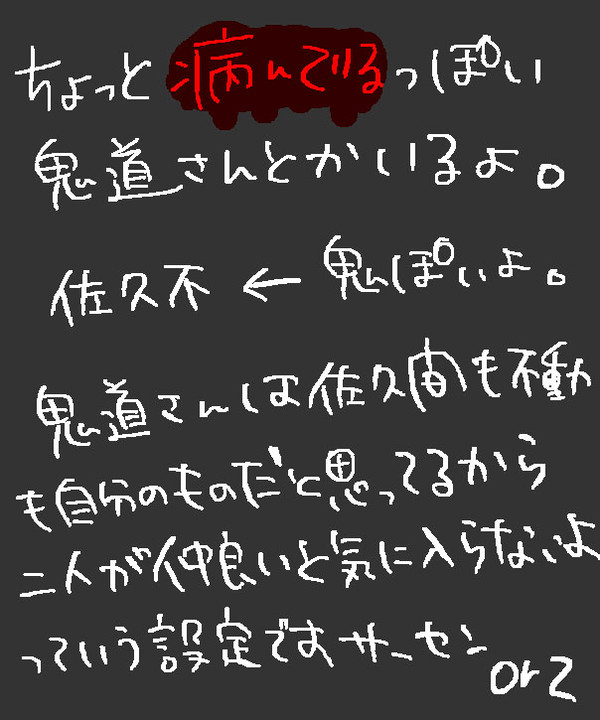 ちょっと病んでるっぽい
鬼道さんとかいるよ。
佐久不←鬼っぽいよ。
鬼道さんは佐久間も不動
も自分のものだと思ってるから
二人が仲良いと気に入らないよ
っていう設定ですサーセン
orz